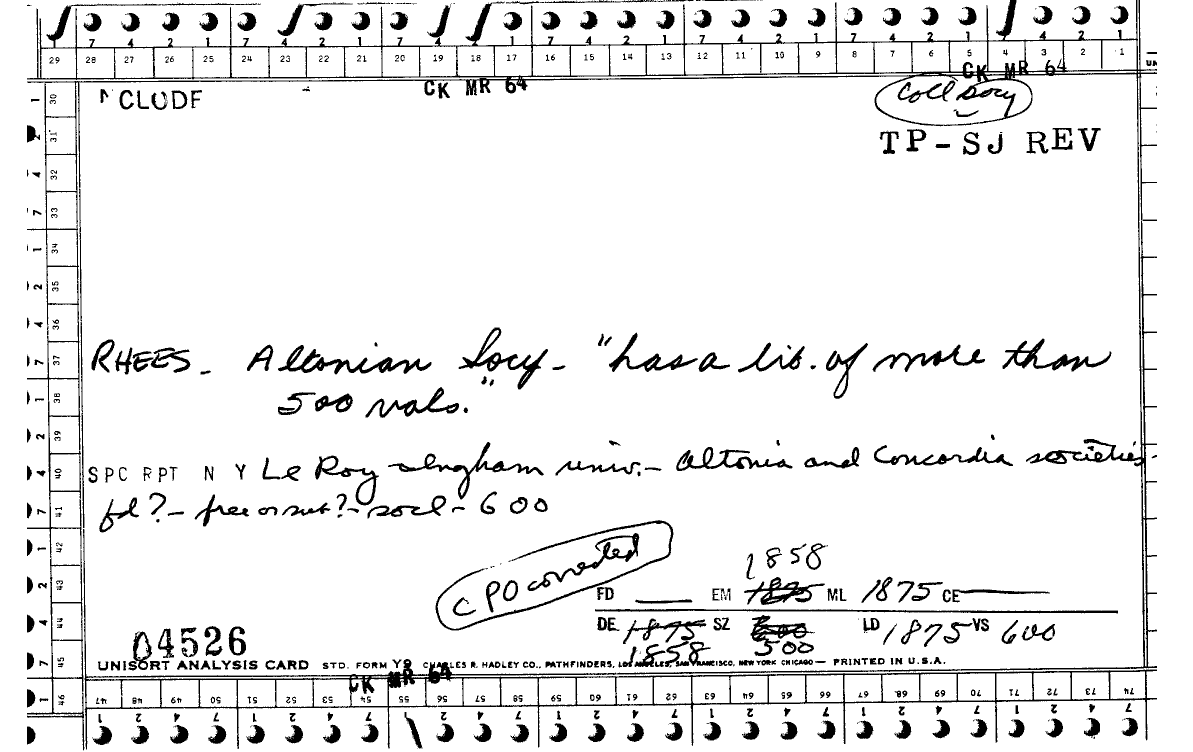 7 4 2 1 7 4 2 1 7 4 2 1 7 4 2 1 7 4 2 1 7 4 2 1
29 28 27 26 25 24 23 22 21 20 19 18 17 16 15 14 13 12 11 10 9 8 7 6 5 4 3 2 1
CK MR 64
CK MR 64
CLODF
Coll Socy
TP-SJ REV
RHEES - Altonian Socy - "has a lib. of more than
500 vols."
SPC RPT N Y Le Roy - Ingham univ. - Altonia and Concordia societies -
fd? - free or sub? - socl - 600
CPO corrected
1858
FD ___ EM 1875 ML 1875 CE
DE 1875 SZ 600 LD 1875 VS 600
1858 500
04526
UNISORT ANALYSIS CARD STD. FORM Y9 CHARLES R. HADLEY CO., PATHFINDERS, LOS ANGELES, SAN FRANCISCO, NEW YORK CHICAGO — PRINTED IN U.S.A.
CK MR 64
47 48 49 50 51 52 53 54 55 56 57 58 59 60 61 62 63 64 65 66 67 68 69 70 71 72 73 74